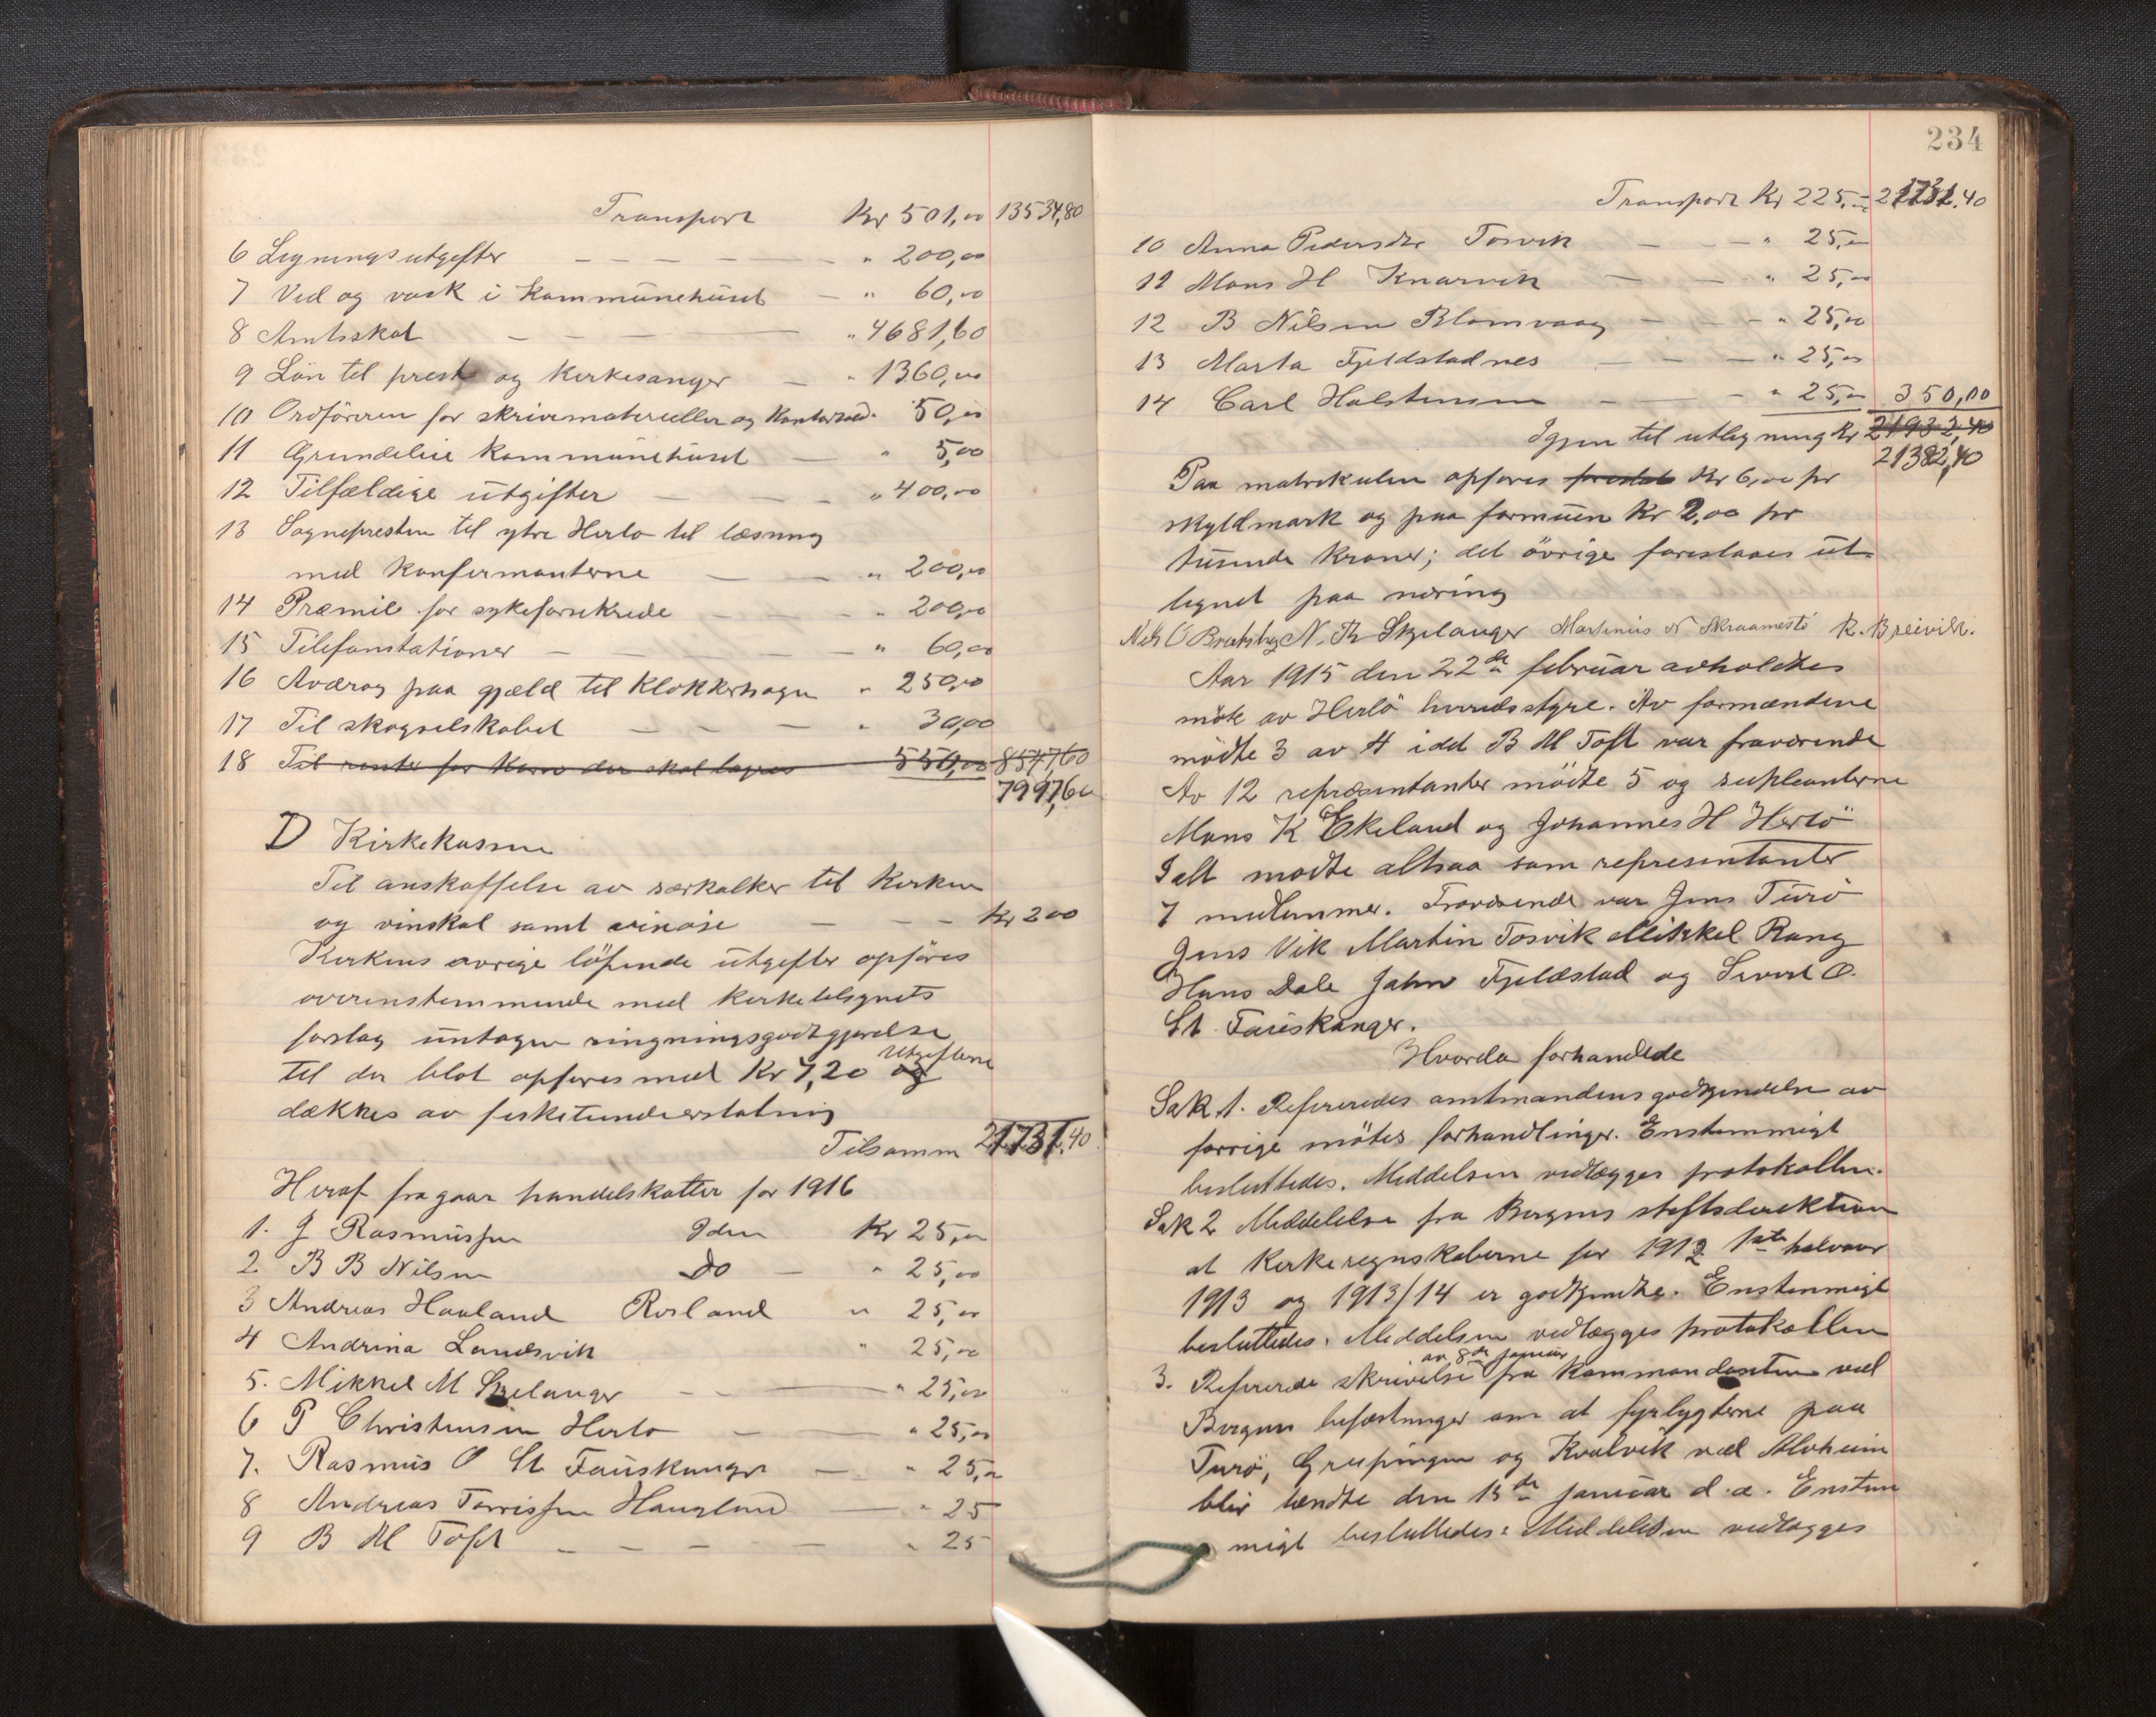 Transport Kr 501,00 13534,80
6 Ligningsutgifter — — — — — " 200,00
7 Ved og vask i kommunehuset — " 60,00
8 Amtsskat — — — " 4681,60
9 Løn til prest og kirkesanger — " 1360,00
10 Ordföreren for skrivematerieller og kontorhold. 50,00
11 Grundeleie kommunehuset — " 5,00
12 Tilfældige utgifter — — — " 400,00
13 Sognepresten til ytre Herlo til læsning
med konfirmanterne — — " 200,00
14 Præmie for sykeforsikrede — — " 200,00
15 Telefonstationer — — — — " 60,00
16 Avdrag paa gjæld til Klokkerhagen " 250,00
17 Til skogselskabet — — — " 30,00
18 Til renter for korn der skal lagres 550,00 8547,60
7997,60
D Kirkekassen
Til anskaffelse av særkalker til kirken
og vinskal samt — — — Kr 200
Kirkens øvrige löpende utgifter opføres
overenstemmende med kirketilsynets
forslag untagen ringningsgodtgjørelse
til der blot opføres med Kr 7,20 og Utgifterne
dækkes av fisketiendeerstatning
Tilsamm 21731.40
Heraf fragaar handelskatter for 1916
1. J Rasmussen Iden Kr 25,00
2 B B Nilsen Do — " 25,00
3 Andreas Haaland Rosland " 25,00
4 Andrina Landsvik " 25,00
5. Mikkel M Skjelanger — — " 25,00
6 P Christensen Herlo — — " 25,00
7. Rasmus O St Fauskanger — " 25,00
8 Andreas Torrissen Haugland — " 25
9 B M Toft — — — — " 25
234
Transport Kr 225,00 21731.40
10 Anna Pedersdtr Tosvik — — — " 25,00
11 Mons H Knarvik — — " 25,00
12 B Nilsen Blomvaag — — — " 25,00
13 Marta Fjeldstadnes — — — " 25,00
14 Carl Halstensen — — — " 25,00 350,00
Igjen til utligning Kr 21932,40
21382,40
Paa matrikulen opføres Kr 6,00 pr
skyldmark og paa formuen Kr 2,00 pr
tusende kroner; det övrige foreslaaes ut-
lignet paa næring
Nils O Bratshaug N. Th Skjelanger Martinus N Skraamestö R. Breivik.
Aar 1915 den 22de februar avholdtes
möte av Herlö herredsstyre. Av formændene
mødte 3 av 4 idet B M Toft var fraværende
Av 12 repræsentanter mödte 5 og supleanterne
Mons K Ekeland og Johannes H Herlö
Ialt mødte altsaa som representanter
7 medlemmer. Fraværende var Jens Turö
Jens Vik Martin Tosvik Mikkel Rong
Hans Dale John Fjeldstad og Sivert O.
St. Fauskanger.
Hvorda forhandlede
Sak 1. Refereredes amtmandens godkjendelse av
forrige mötes forhandlinger. Enstemmigt
besluttedes. Meddelsen vedlægges protokollen.
Sak 2 Meddelelse fra Bergens stiftsdirektion
at kirkeregnskaberne for 1912 1ste halvaar
1913 og 1913/14 er godkjendte. Enstemmigt
besluttedes. Meddelsen vedlægges protokollen
av 8de januar
3. Refererede skrivelse fra kommandanten ved
Bergens befæstninger om at fyrlygterne paa
Turö, Grupingen og Kvalvik ved Alvheim
blir tændte den 15de januar d.a. Enstem
migt besluttedes: Meddelelsen vedlægges